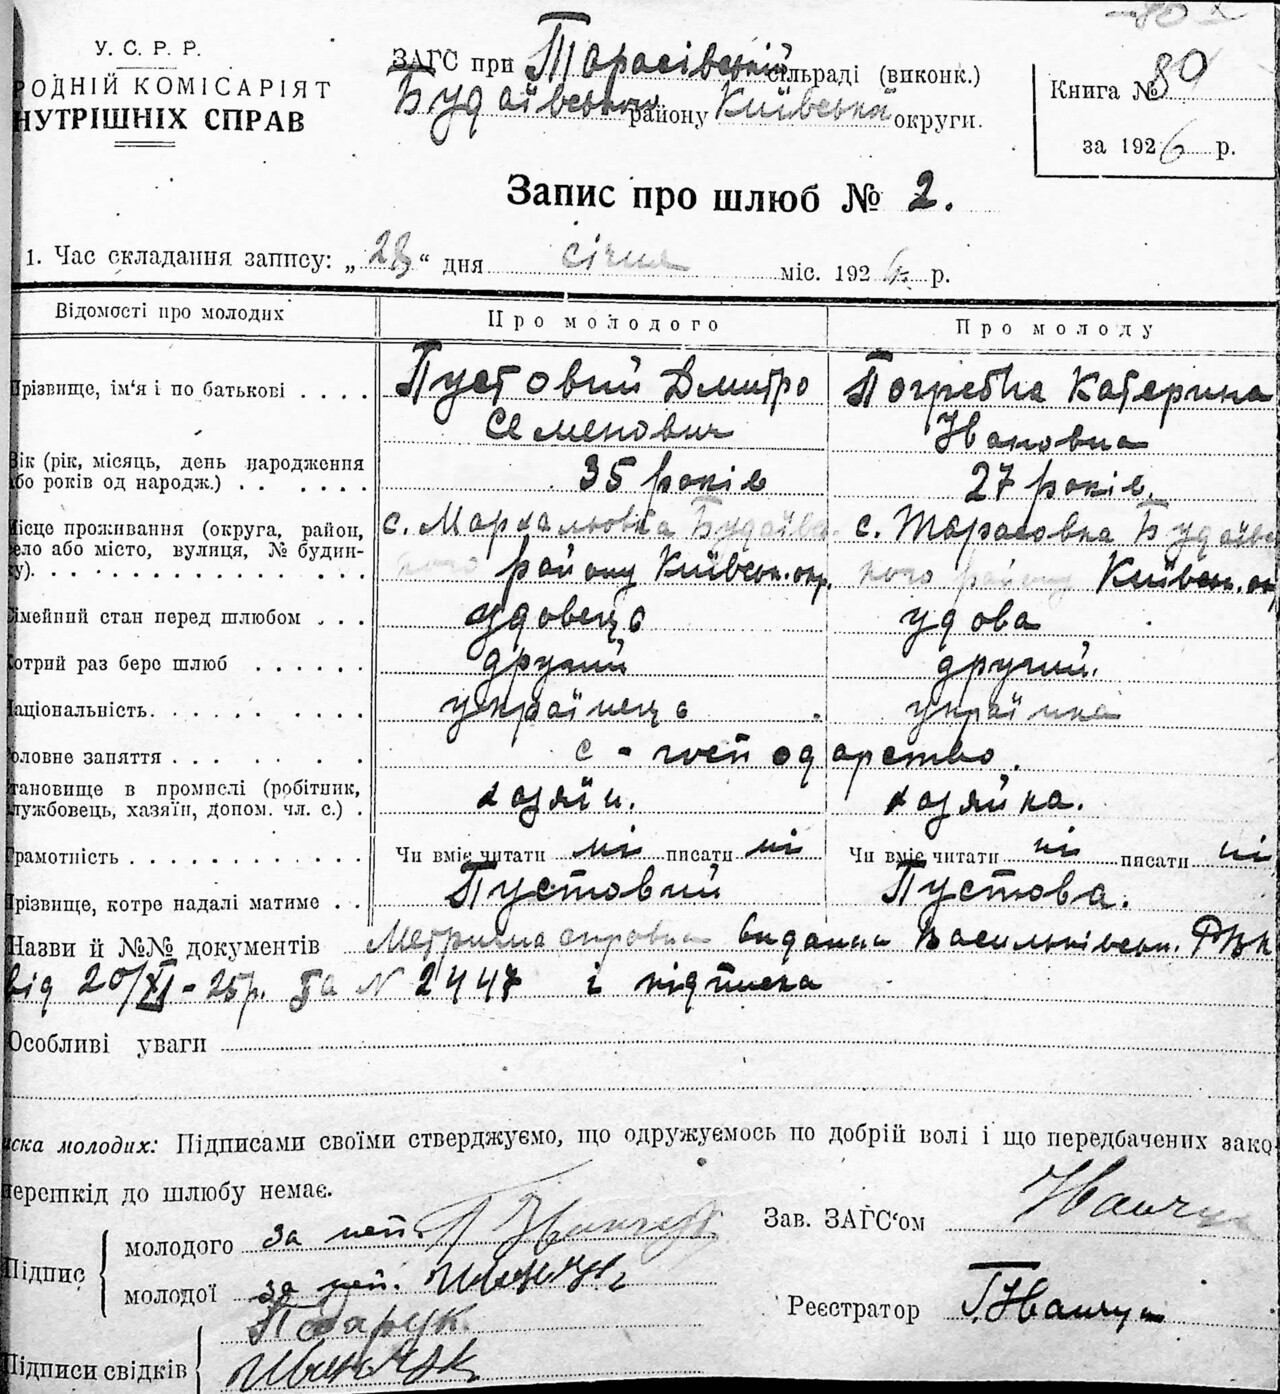 80
У. С. Р. Р.
РОДНІЙ КОМІСАРІЯТ
НУТРІШНІХ СПРАВ
ЗАГС при Тарасівській сільраді (виконк.)
Будаївського району Київської округи.
Книга № 80
за 1926 р.
Запис про шлюб № 2.
1. Час складання запису: „28“ дня січня міс. 1926 р.
Відомості про молодих
Про молодого
Про молоду
прізвище, ім'я і по батькові . . . .
Пустовий Дмитро
Семенович
Погребна Катерина
Івановна
Вік (рік, місяць, день народження
або років од народж.) . . . . . .
35 років
27 років.
Місце проживання (округа, район,
село або місто, вулиця, № будин-
ку). . . . . . . . . . . . . . .
с. Мархалювка Будаївсь-
кого району Київськ. окр.
с. Тарасовка Будаївсь
кого району Київськ. окр
імейний стан перед шлюбом . . .
удовець
удова
отрий раз бере шлюб . . . . . .
другий
другий.
аціональність. . . . . . . . . .
українець
українка
оловне заняття . . . . . . . .
с-господарство.
тановище в промислі (робітник,
лужбовець, хазяїн, допом. чл. с.) .
хозяїн.
хозяйка.
рамотність . . . . . . . . . . .
Чи вміє читати ні писати ні
Чи вміє читати ні писати ні
Прізвище, котре надалі матиме . .
Пустовий
Пустова.
Назви й №№ документів Метрична справка видана Васильківськ. РВК
від 20/XI-25р. за N 2447 і підписка
Особливі уваги
иска молодих: Підписами своїми стверджуємо, що одружуємось по добрій волі і що передбачених зако
перешкід до шлюбу немає.
Підпис
молодого за неп. Г Іванчук
молодої за неп.
Зав. ЗАГС'ом Іванчук
Реєстратор Г. Іванчук
Підписи свідків